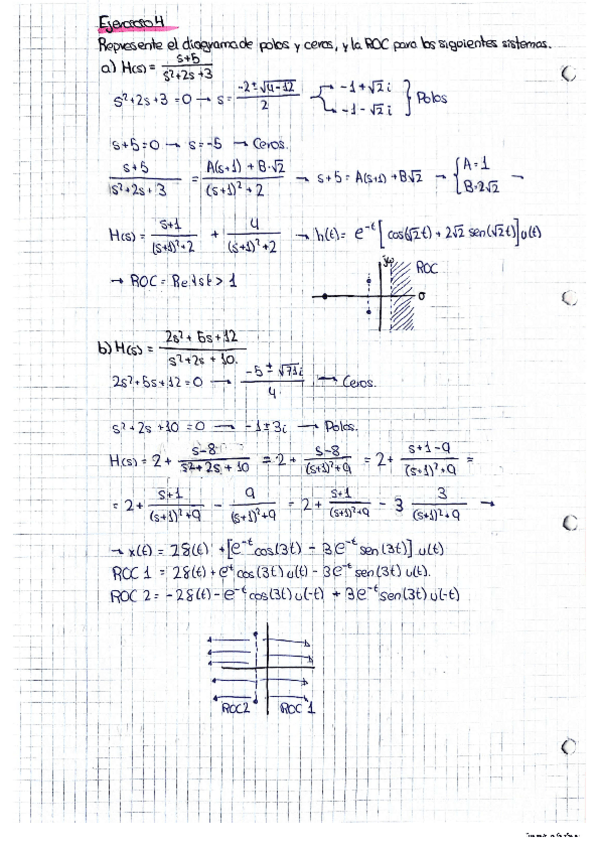 Ejercicio 4
Represente el diagrama de polos y ceros, y la ROC para los siguientes sistemas.
a) H(s) = (s+5)/(s²+2s+3)
s²+2s+3 = 0 → s = (-2 ± √(4-12))/2 → -1+√2 i
→ -1-√2 i } Polos
s+5=0 → s=-5 → Ceros.
(s+5)/(s²+2s+3) = (A(s+1) + B·√2)/((s+1)²+2) → s+5 = A(s+1) + B√2 → { A=1
B=2√2 →
H(s) = (s+1)/((s+1)²+2) + 4/((s+1)²+2) → h(t) = e^-t [cos(√2t) + 2√2 sen(√2t)] u(t)
jω
ROC
σ
→ ROC = Re{s} > 1
b) H(s) = (2s²+5s+12)/(s²+2s+10)
2s²+5s+12=0 → (-5 ± √71i)/4 → Ceros.
s²+2s+10 = 0 → -1±3i → Polos.
H(s) = 2 + (s-8)/(s²+2s+10) = 2 + (s-8)/((s+1)²+9) = 2 + (s+1-9)/((s+1)²+9) =
= 2 + (s+1)/((s+1)²+9) - 9/((s+1)²+9) = 2 + (s+1)/((s+1)²+9) - 3 3/((s+1)²+9) →
→ x(t) = 2δ(t) + [e^-t cos(3t) - 3e^-t sen(3t)] u(t)
ROC 1 = 2δ(t) + e^t cos(3t) u(t) - 3e^-t sen(3t) u(t).
ROC 2 = -2δ(t) - e^-t cos(3t) u(-t) + 3e^-t sen(3t) u(-t)
ROC2 ROC 1